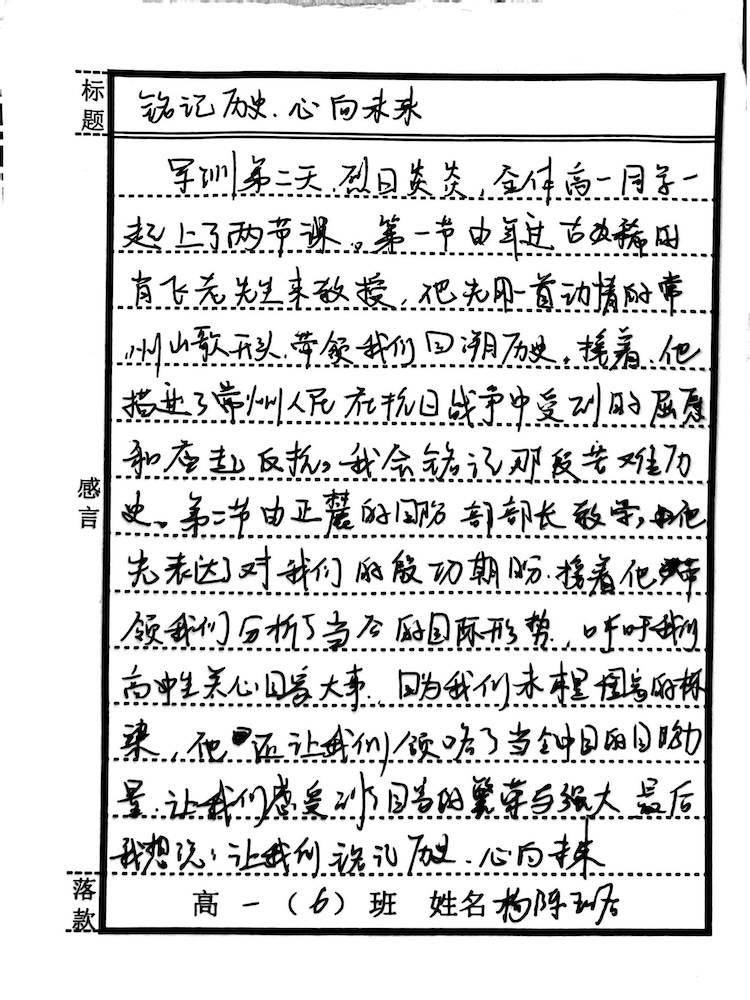 标题
铭记历史、心向未来
军训第二天,烈日炎炎,全体高一同学一
起上了两节课。第一节由年过古稀的
肖飞老先生来教授,他先用一首动情的常
州山歌开头,带领我们回溯历史。接着,他
描述了常州人民在抗日战争中受到的屈辱
和应起反抗。我会铭记那段苦难历
史。第二节由正麓的国防部部长教学,他
先表达了对我们的殷切期盼,接着他带
领我们分析了当今的国际形势,呼吁我们
高中生关心国家大事,因为我们未来是国家的栋
梁,他还让我们领略了当今中国的国防力
量,让我们感受到了国家的繁荣与强大 最后
我想说:让我们铭记历史、心向未来
感言
落款
高一(6)班 姓名 杨陈